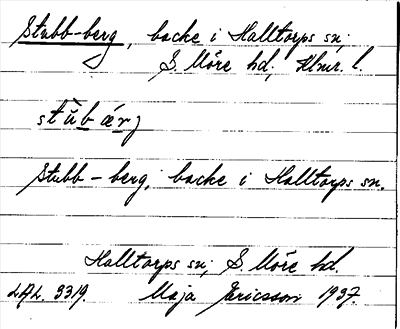 Stubb-berg, backe i Halltorps sn;
S. Möre hd, Klmr. l.
stùbærj
Stubb-berg, backe i Halltorps sn.
Halltorps sn; S. Möre hd.
LAL. 3319. Maja Ericsson 1937.